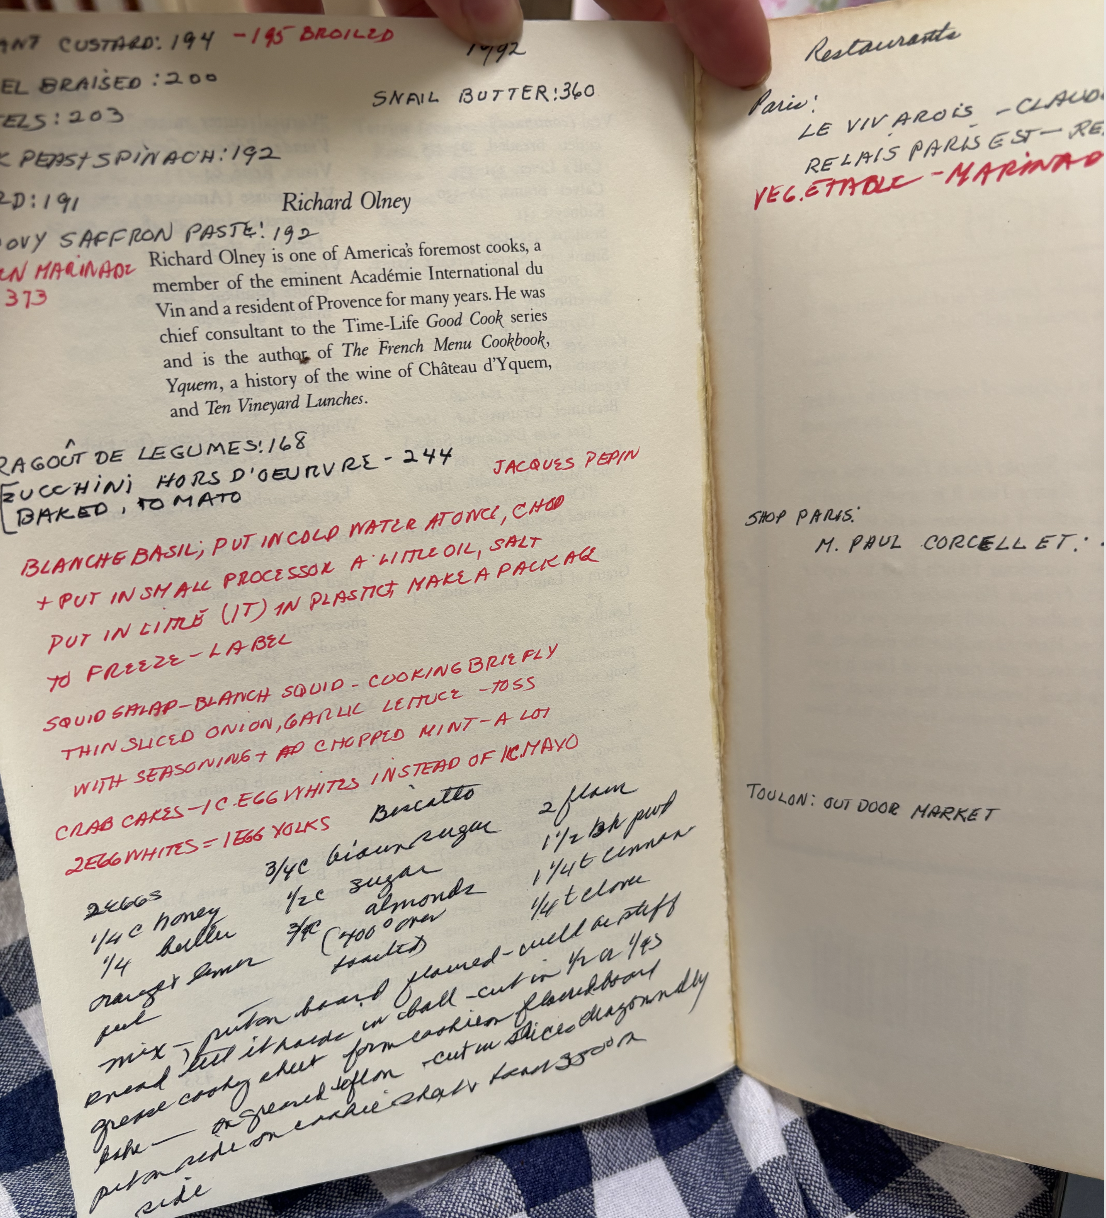 ANT CUSTARD: 194 - 195 BROILED
1992
EL BRAISED: 200
SNAIL BUTTER: 360
ELS: 203
K PEAS + SPINACH: 192
RD: 191
Richard Olney
OVY SAFFRON PASTE: 192
EN MARINADE
373
Richard Olney is one of America's foremost cooks, a
member of the eminent Académie International du
Vin and a resident of Provence for many years. He was
chief consultant to the Time-Life Good Cook series
and is the author of The French Menu Cookbook,
Yquem, a history of the wine of Château d'Yquem,
and Ten Vineyard Lunches.
RAGOÛT DE LEGUMES: 168
ZUCCHINI HORS D'OEURVRE - 244
BAKED, TOMATO
JACQUES PEPIN
BLANCHE BASIL; PUT IN COLD WATER AT ONCE, CHOP
+ PUT IN SMALL PROCESSOR A LITTLE OIL, SALT
PUT IN LITTLE (IT) IN PLASTIC, MAKE A PACKAGE
TO FREEZE - LABEL
SQUID SALAD - BLANCH SQUID - COOKING BRIEFLY
THIN SLICED ONION, GARLIC LETTUCE - TOSS
WITH SEASONING + CHOPPED MINT - A LOT
CRAB CAKES - 1 C. EGG WHITES INSTEAD OF 1C. MAYO
2 EGG WHITES = 1 EGG YOLKS
Biscotto
2 EGGS
1/4 C honey
1/4 butter
orange + lemon
peel
3/4 C brown sugar
1/2 C sugar
3/4 C almonds
(400° oven
toasted)
2 flour
1 1/2 bk pwd
1 1/4 t cinnan
1/4 t clove
mix - put on board floured - will be stiff
knead till it holds in ball - cut in 1/2 or 1/4s
grease cooky sheet form cookies on floured board
bake - on greased teflon - cut in slices diagonally
put on side on cookie sheet + toast 350°
side
Restaurants
Paris:
LE VIVAROIS - CLAUD
RELAIS PARIS EST - RE
VEGETABLE - MARINAD
SHOP PARIS:
M. PAUL CORCELLET:
TOULON: OUTDOOR MARKET